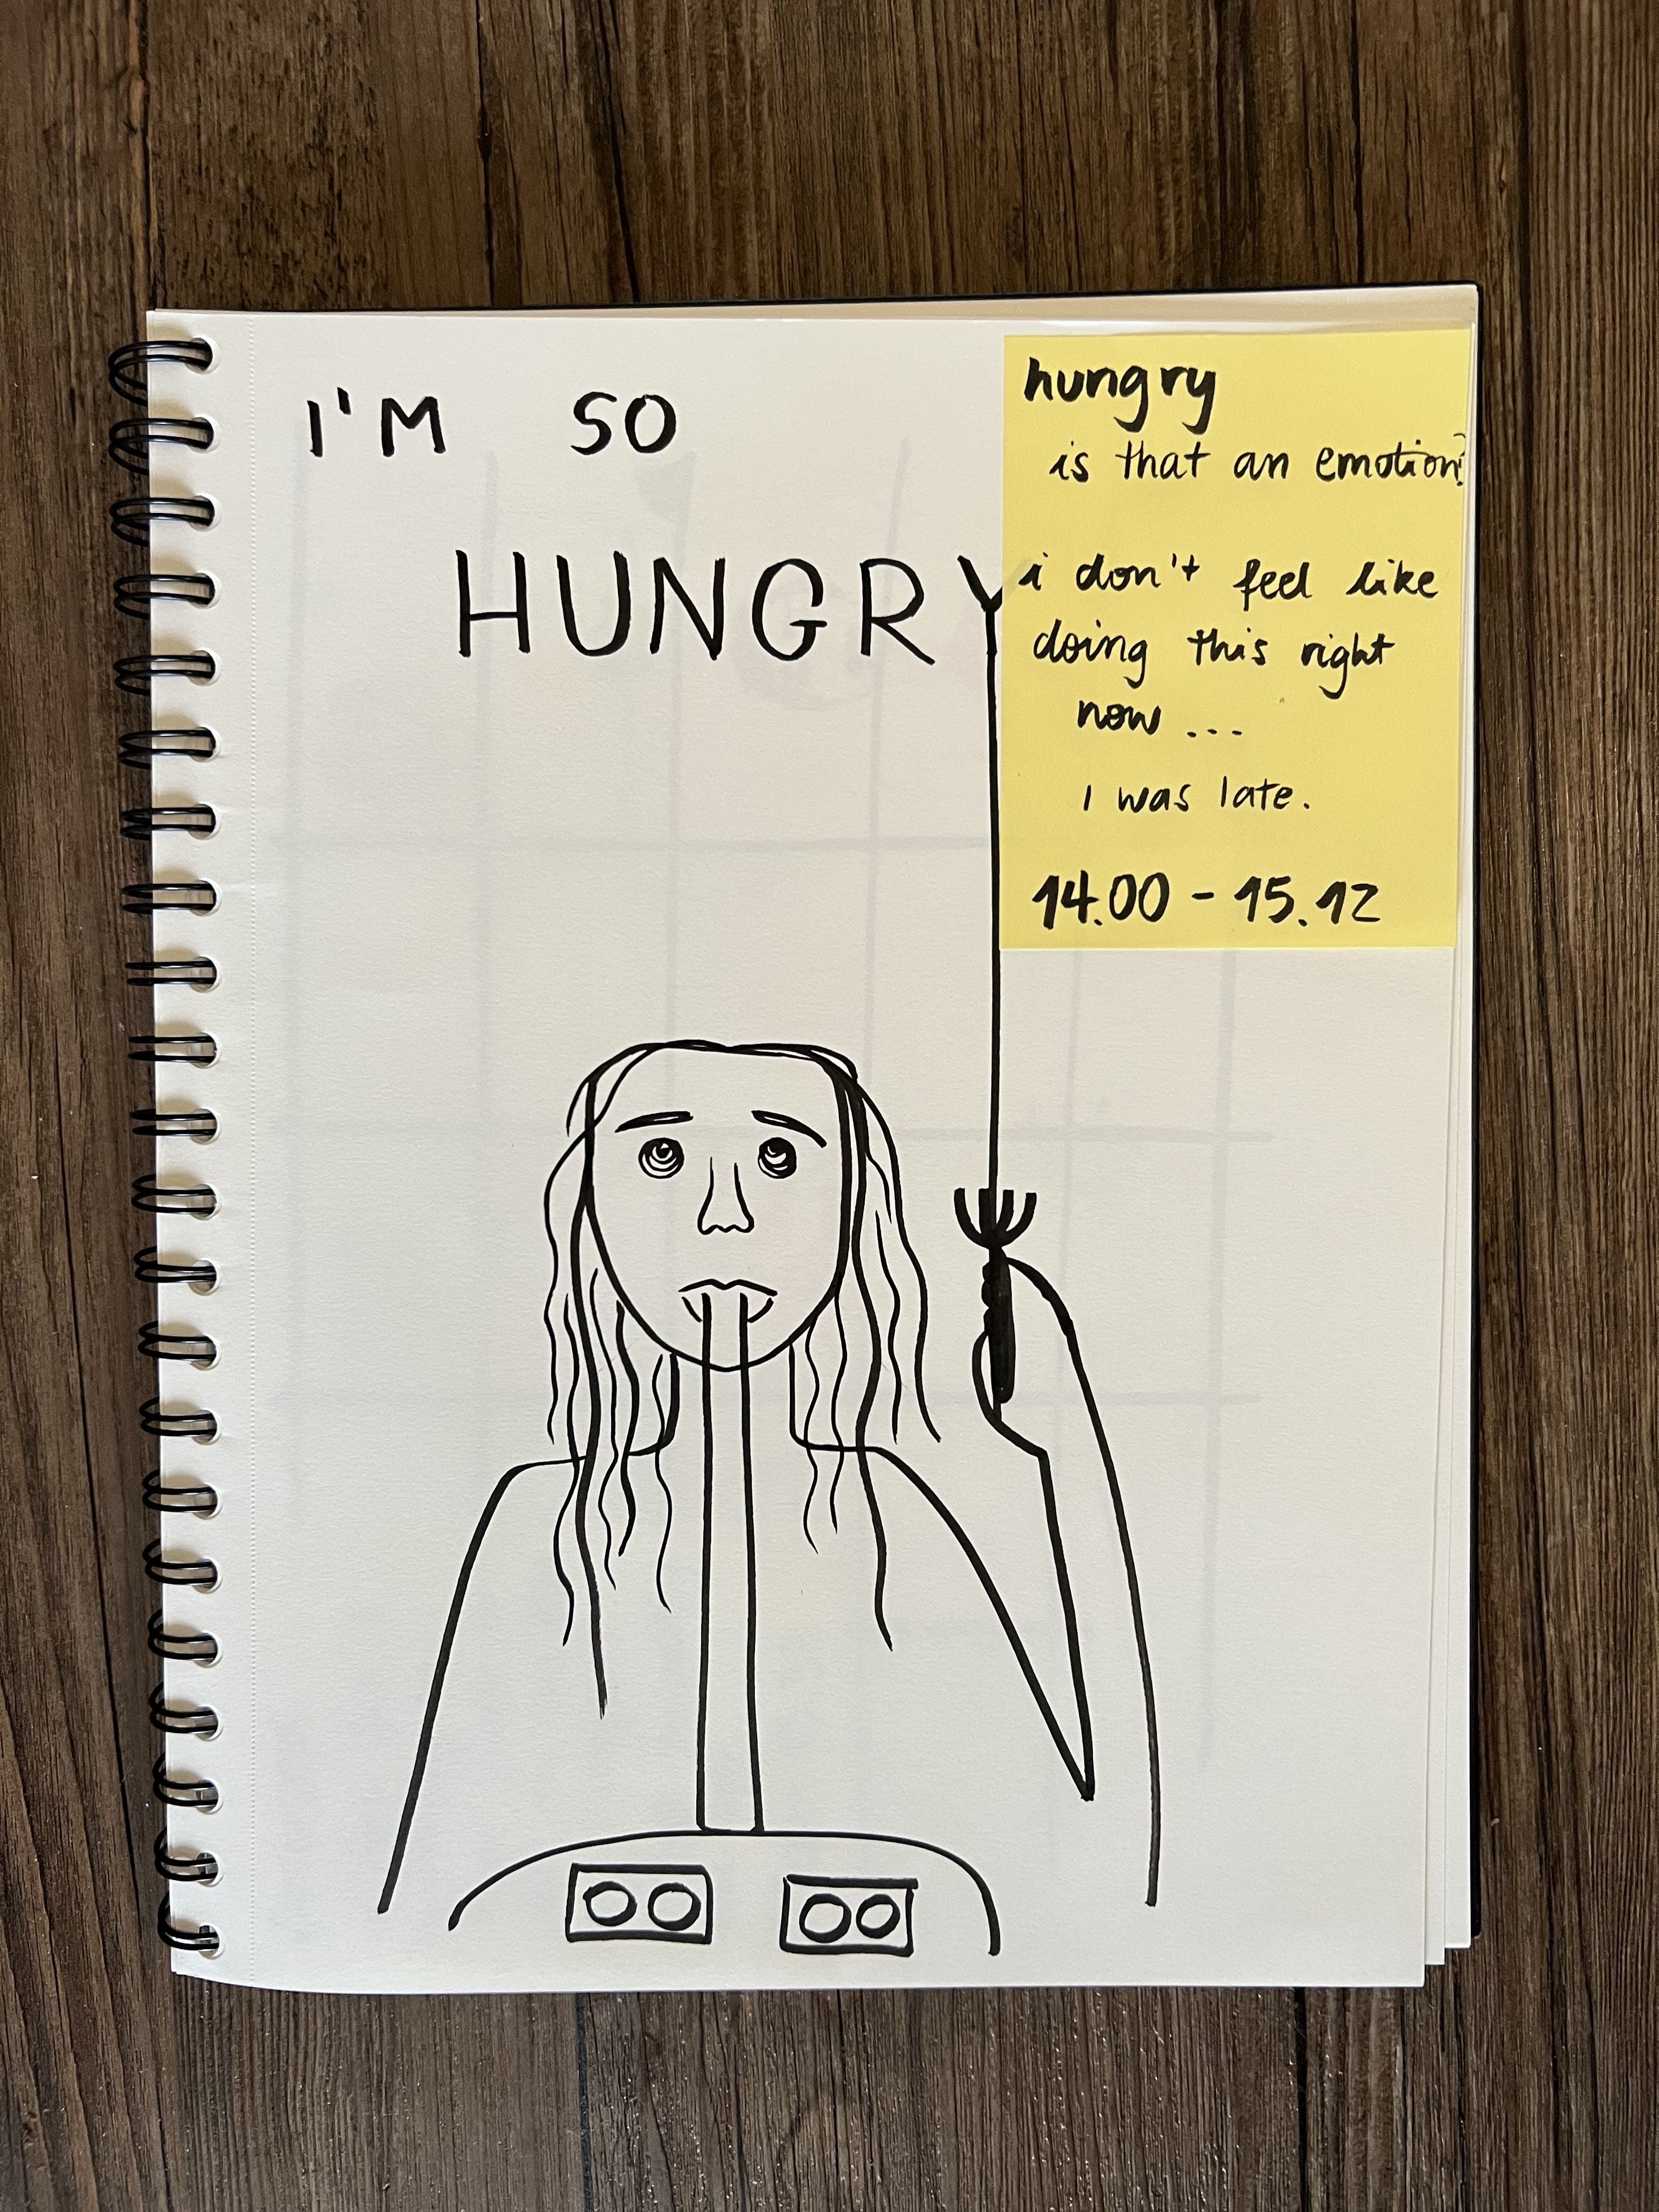 I'M SO
HUNGRY
hungry
is that an emotion?
i don't feel like
doing this right
now ...
I was late.
14.00 - 15.12